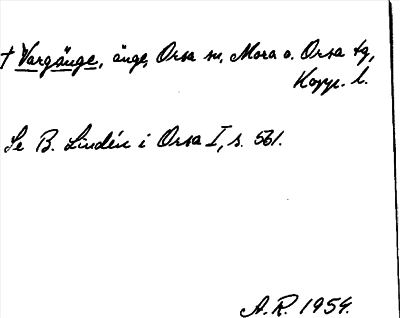 † Vargänge, änge, Orsa sn, Mora o. Orsa tg,
Kopp. l.
Se B. Lindén i Orsa I, s. 561.
A.R. 1954.